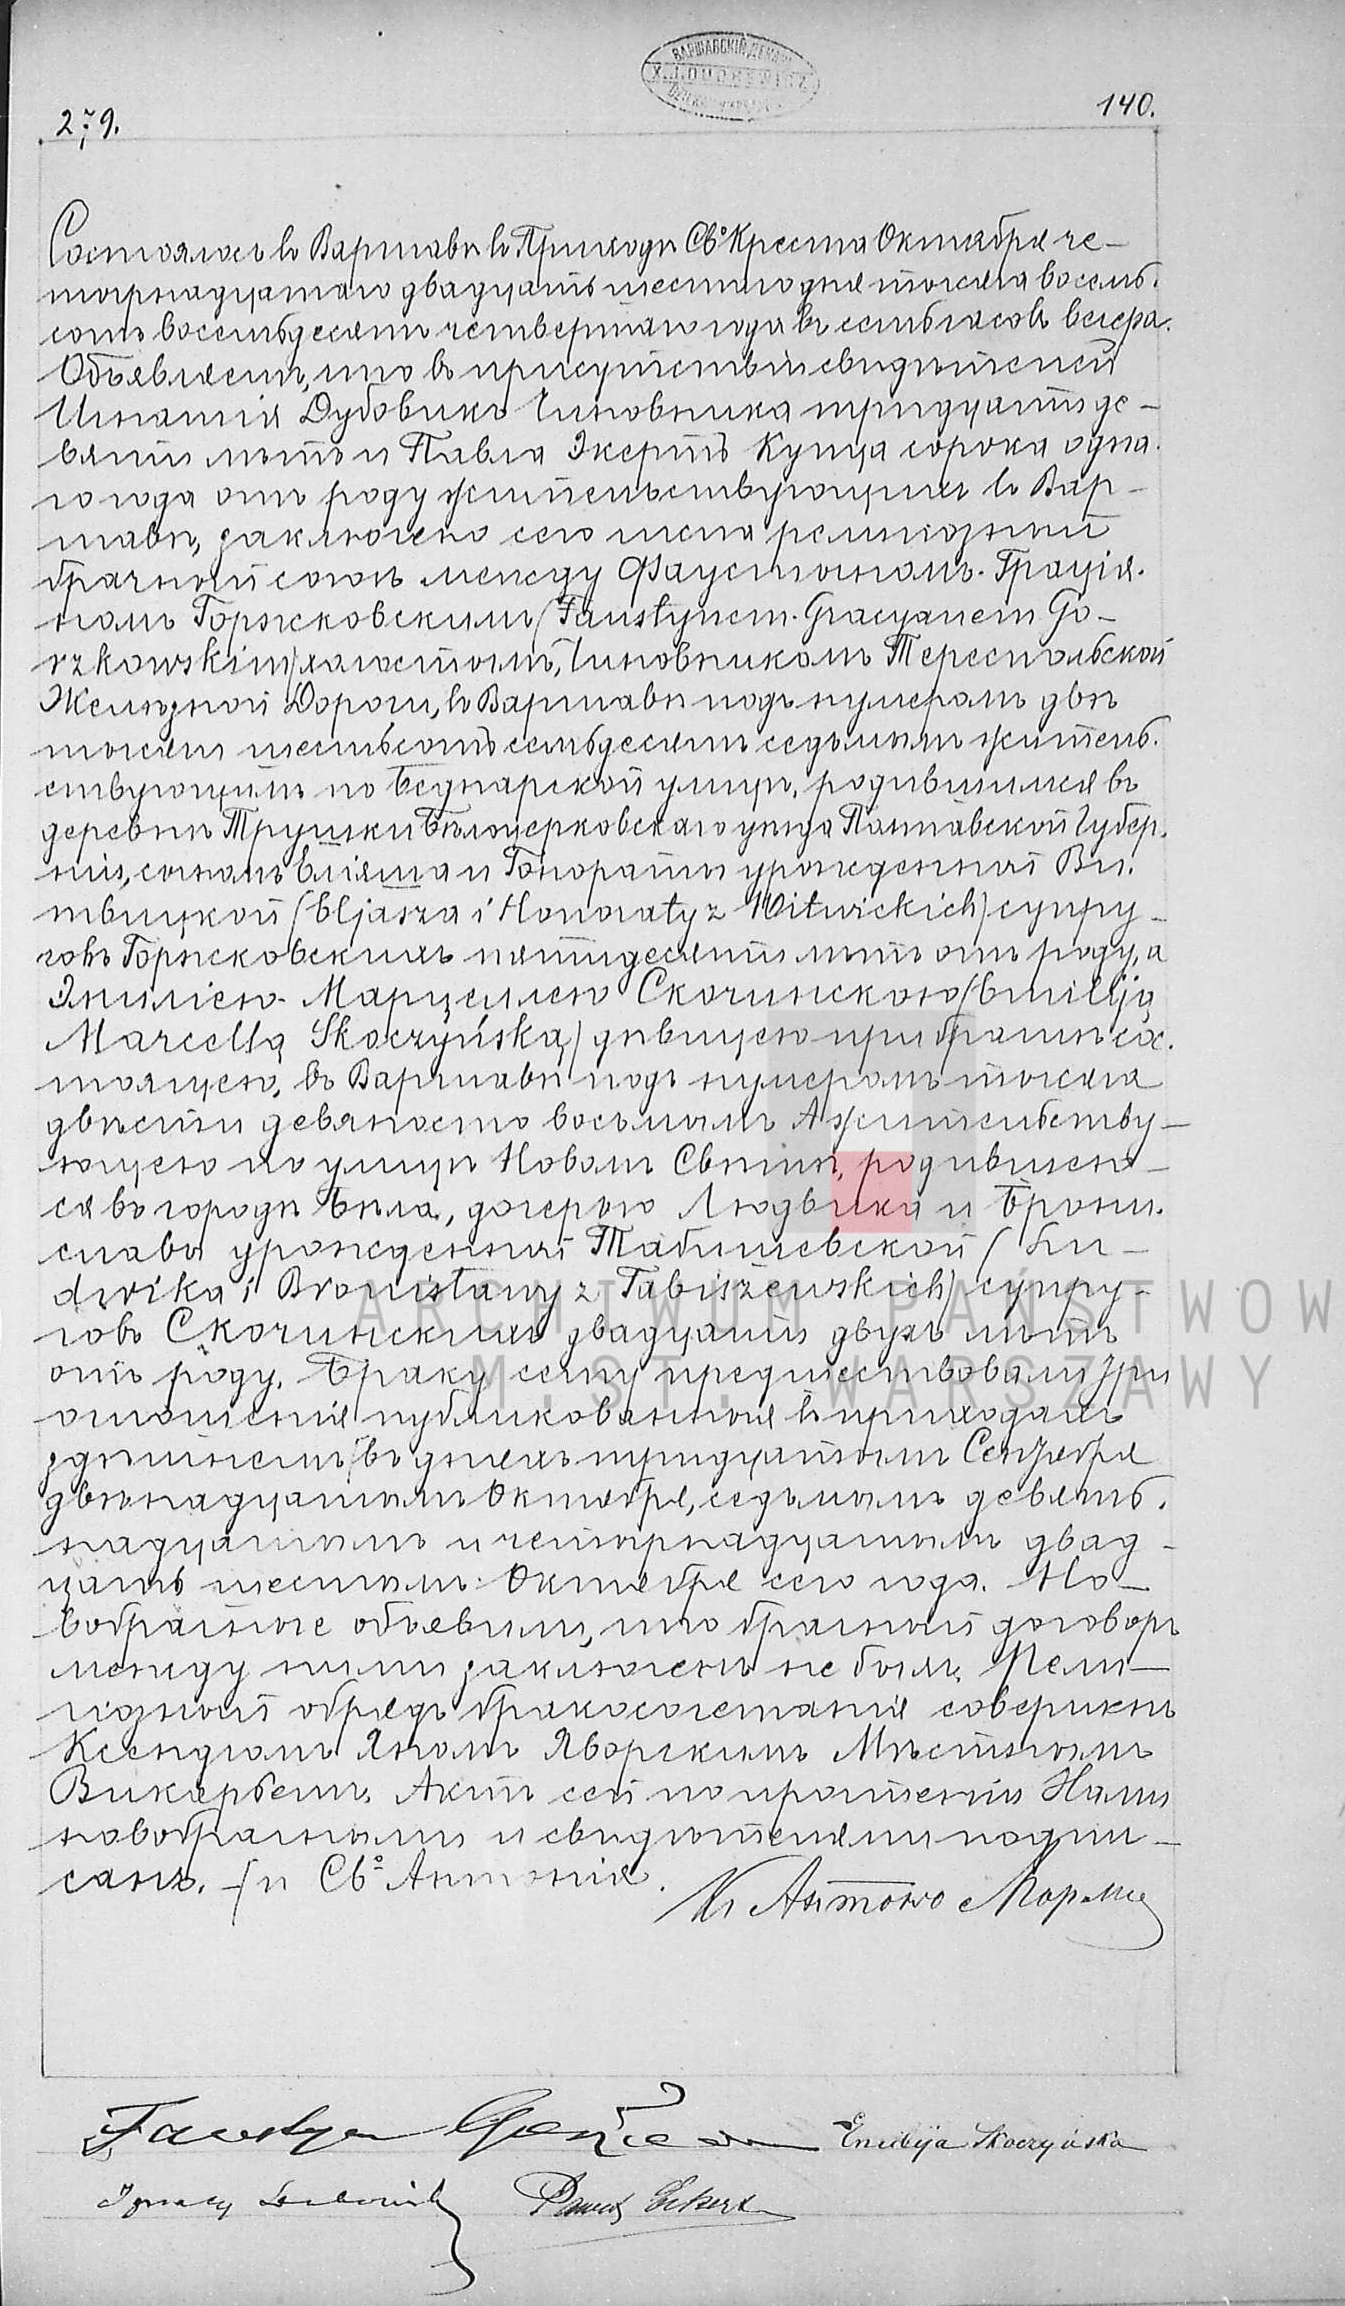 279.
140.
ВАРШАВСКІЙ ДЕКАН
X. J. DUDREWICZ
Состоялось въ Варшавѣ въ Приходѣ Св° Креста Октября че-
тырнадцатаго двадцать шестаго дня тысяча восемь-
сотъ восемьдесятъ четвертаго года въ семь часовъ вечера.
Объявляемъ, что въ присутствіи свидѣтелей
Игнатія Дубовикъ Чиновника тридцати де-
вяти лѣтъ и Павла Экертъ Купца сорока одна-
го года отъ роду жительствующихъ въ Вар-
шавѣ, заключено сего числа религіозный
брачный союзъ между Фаустыномъ-Граціа-
номъ Горжковскимъ (Faustynem-Gracyanem Go-
rzkowskim) холостымъ, Чиновникомъ Тереспольской
Желѣзной Дороги, въ Варшавѣ подъ нумеромъ двѣ
тысячи шестьсотъ семьдесятъ седьмымъ житель-
ствующимъ по Беднарской улицѣ, родившимся въ
деревнѣ Трушки Бѣлоцерковскаго уѣзда Полтавской Губер-
ніи, сыномъ Еліяша и Гонораты урожденной Ви-
твицкой (Eljasza i Honoraty z Witwickich) супру-
говъ Горжсковскихъ пятидесяти лѣтъ отъ роду, а
Эмиліею-Марцеллею Скочинскою (Emilją
Marcellą Skoczyńską) дѣвицею при братѣ сос-
тоящею, въ Варшавѣ подъ нумеромъ тысяча
двѣсти девяносто восьмымъ А жительству-
ющею по улицѣ Новомъ Свѣтѣ, родившею-
ся въ городѣ Бѣла, дочерью Людвика и Брони-
славы урожденной Табишевской (Lu-
dwika i Bronisławy z Tabiszewskich) супру-
говъ Скочинскихъ двадцати двухъ лѣтъ
отъ роду. Браку сему предшествовали три
оглашенія публикованныя въ приходахъ
здѣшнемъ / въ дняхъ тридцатомъ Сентября
двѣнадцатомъ Октября, седьмомъ девят-
надцатомъ и четырнадцатомъ двад-
цать шестомъ Октября сего года. Но-
вобрачные объявили, что брачный договоръ
между ними заключенъ не былъ. Рели-
гіозный обрядъ бракосочетанія совершенъ
Ксендзомъ Яномъ Яворскимъ Мѣстнымъ
Викаріемъ. Актъ сей по прочтеніи Нами
новобрачными и свидѣтелями подпи-
санъ. / и Св° Антонія.
Кс Антоно
Faustyn
Emilija Skoczyńska
Ignacy
Paweł Eckert
ARCHIWUM PAŃSTWOW
M.ST. WARSZAWY